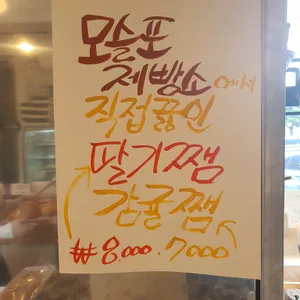 모슬포
제빵소에서
직접끓인
딸기쨈
감귤쨈
₩8000.7000